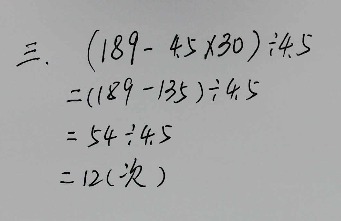 三. (189-4.5×30)÷4.5
=(189-135)÷4.5
=54÷4.5
=12(次)